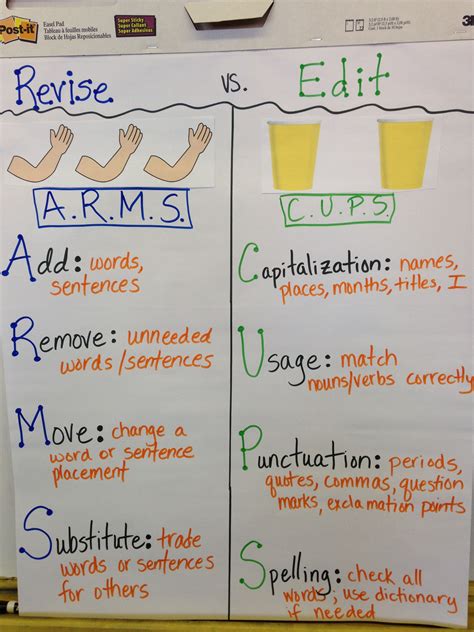 Post-it
Easel Pad
Tableau à feuilles mobiles
Block de Hojas Reposicionables
Super Sticky
Super Collant
Super Adhesivas
Revise vs. Edit
A.R.M.S.
Add: words,
sentences
Remove: unneeded
words/sentences
Move: change a
word or sentence
placement
Substitute: trade
words or sentences
for others
C.U.P.S.
Capitalization: names,
places, months, titles, I
Usage: match
nouns/verbs correctly
Punctuation: periods,
quotes, commas, question
marks, exclamation points
Spelling: check all
words; use dictionary
if needed